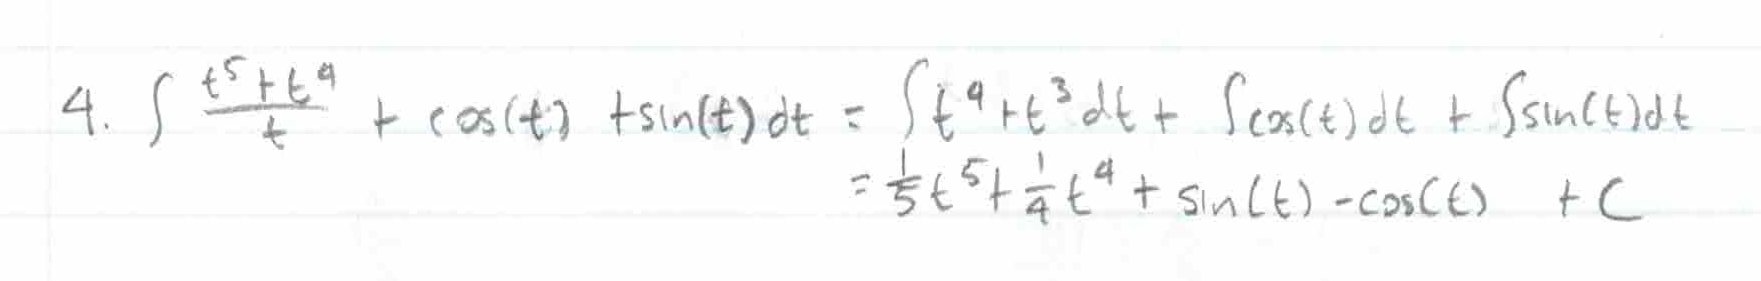 4. ∫ (t⁵+t⁴)/t + cos(t) + sin(t) dt = ∫ t⁴+t³ dt + ∫cos(t) dt + ∫sin(t) dt
= 1/5 t⁵ + 1/4 t⁴ + sin(t) - cos(t) + C